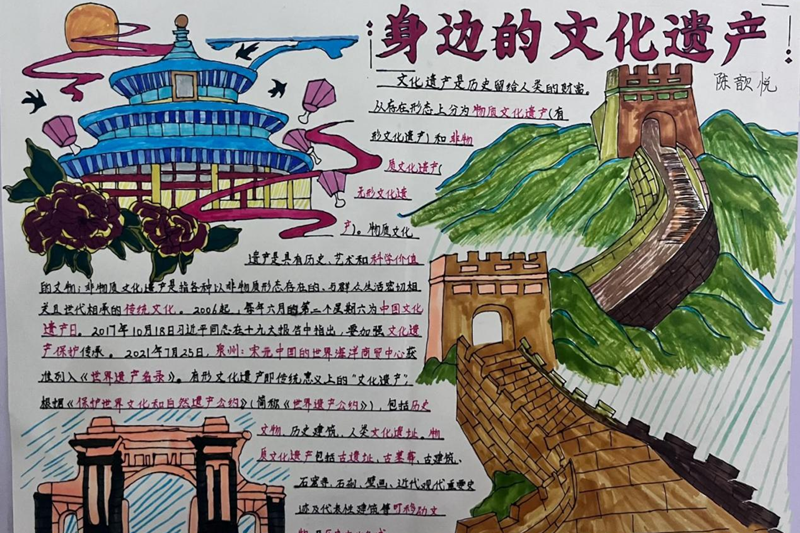 身边的文化遗产
陈歆悦
文化遗产是历史留给人类的财富。
从存在形态上分为物质文化遗产(有
形文化遗产)和非物
质文化遗产
无形文化遗
产)。物质文化
遗产是具有历史、艺术和科学价值
的文物;非物质文化遗产是指各种以非物质形态存在的,与群众生活密切相
关且世代相承的传统文化。2006起,每年六月的第二个星期六为中国文化
遗产日。2017年10月18日习近平同志在十九大报告中指出,要加强文化遗
产保护传承。2021年7月25日,泉州:宋元中国的世界海洋商贸中心获
准列入《世界遗产名录》。有形文化遗产即传统意义上的"文化遗产",
根据《保护世界文化和自然遗产公约》(简称《世界遗产公约》),包括历史
文物、历史建筑、人类文化遗址。物
质文化遗产包括古遗址、古墓葬、古建筑、
石窟寺、石刻、壁画、近代现代重要史
迹及代表性建筑等可移动文